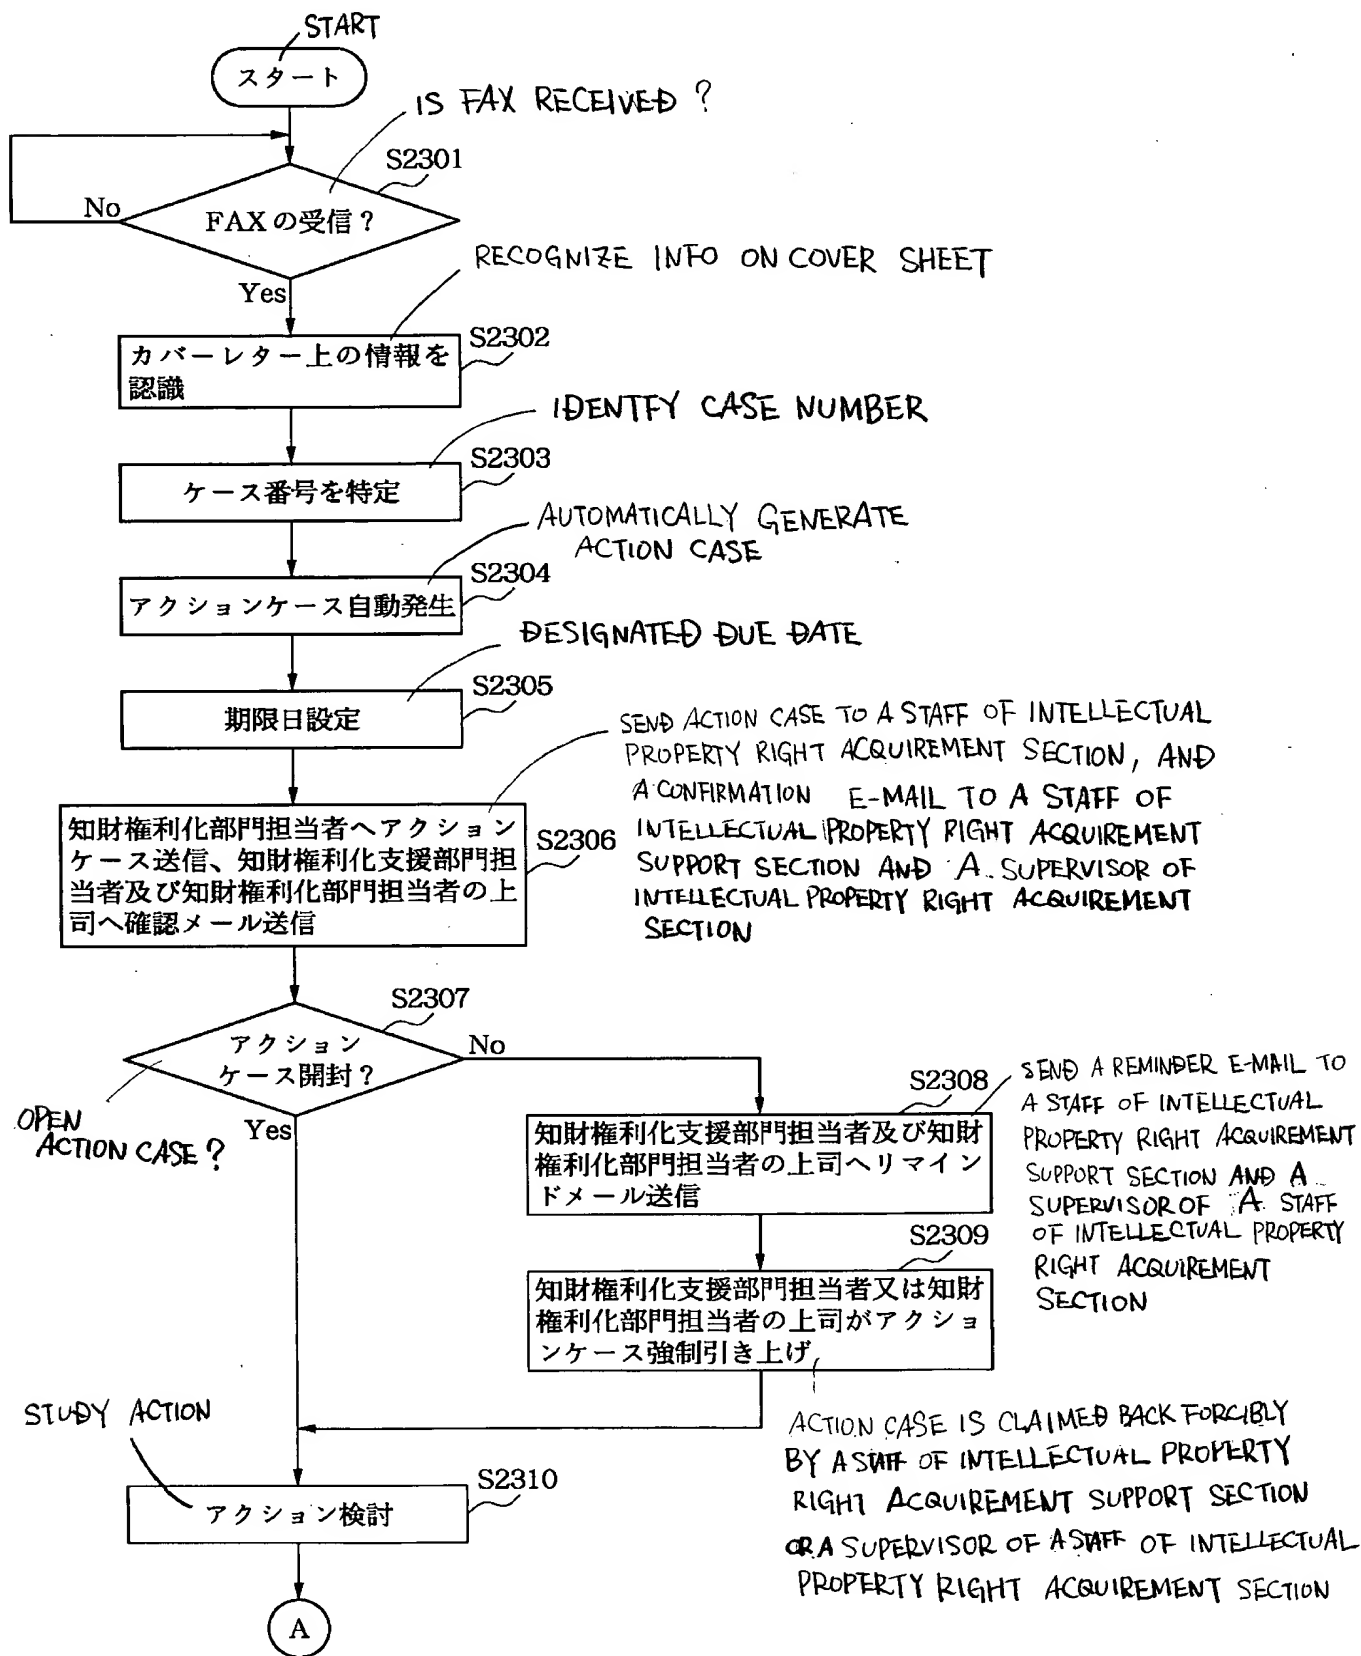 START
スタート
IS FAX RECEIVED ?
S2301
No
FAXの受信?
Yes
RECOGNIZE INFO ON COVER SHEET
S2302
カバーレター上の情報を
認識
IDENTFY CASE NUMBER
S2303
ケース番号を特定
AUTOMATICALLY GENERATE
ACTION CASE
S2304
アクションケース自動発生
DESIGNATED DUE DATE
S2305
期限日設定
SEND ACTION CASE TO A STAFF OF INTELLECTUAL
PROPERTY RIGHT ACQUIREMENT SECTION, AND
A CONFIRMATION E-MAIL TO A STAFF OF
INTELLECTUAL PROPERTY RIGHT ACQUIREMENT
SUPPORT SECTION AND A SUPERVISOR OF
INTELLECTUAL PROPERTY RIGHT ACQUIREMENT
SECTION
S2306
知財権利化部門担当者へアクション
ケース送信、知財権利化支援部門担
当者及び知財権利化部門担当者の上
司へ確認メール送信
S2307
アクション
ケース開封?
No
Yes
OPEN
ACTION CASE ?
S2308
知財権利化支援部門担当者及び知財
権利化部門担当者の上司へリマイン
ドメール送信
SEND A REMINDER E-MAIL TO
A STAFF OF INTELLECTUAL
PROPERTY RIGHT ACQUIREMENT
SUPPORT SECTION AND A
SUPERVISOR OF A STAFF
OF INTELLECTUAL PROPERTY
RIGHT ACQUIREMENT
SECTION
S2309
知財権利化支援部門担当者又は知財
権利化部門担当者の上司がアクショ
ンケース強制引き上げ
ACTION CASE IS CLAIMED BACK FORCIBLY
BY A STAFF OF INTELLECTUAL PROPERTY
RIGHT ACQUIREMENT SUPPORT SECTION
OR A SUPERVISOR OF A STAFF OF INTELLECTUAL
PROPERTY RIGHT ACQUIREMENT SECTION
STUDY ACTION
S2310
アクション検討
A